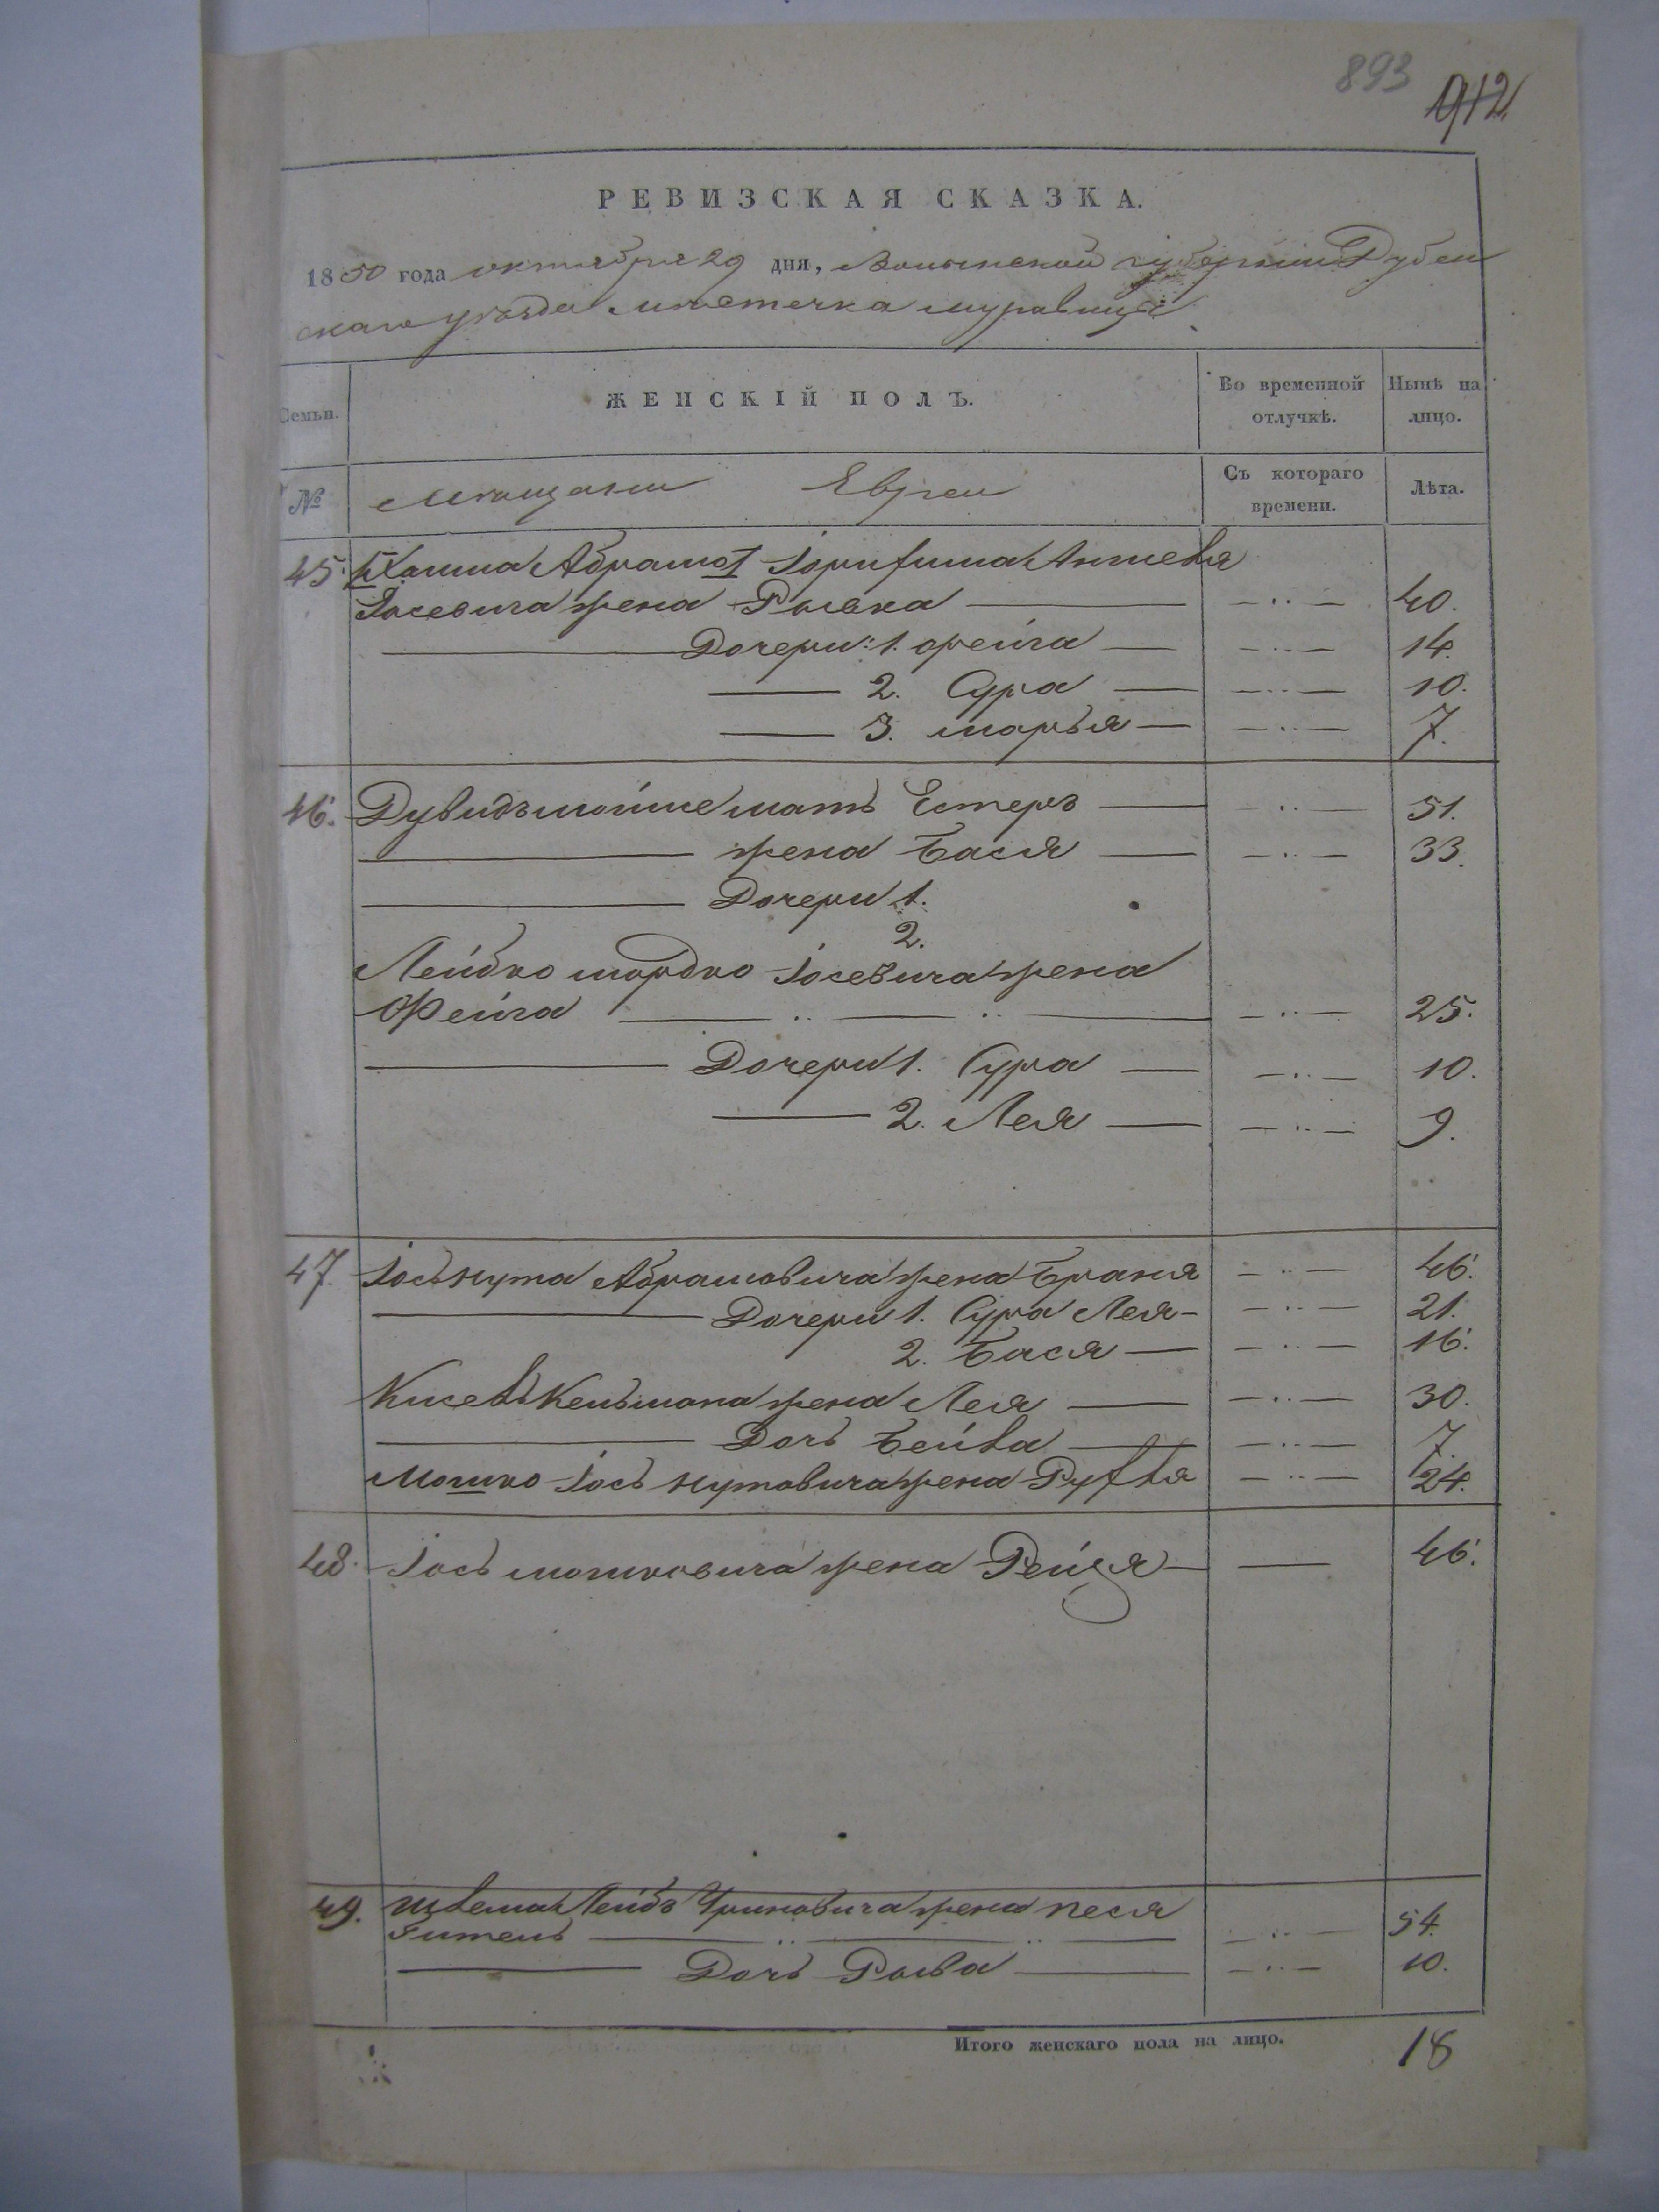 893 912
РЕВИЗСКАЯ СКАЗКА.
1850 года октября 29 дня, Волынской губернии Дубен
скаго уѣзда мѣстечка Муравицы
Семьи. ЖЕНСКІЙ ПОЛЪ. Во временной отлучкѣ. Нынѣ на лицо.
№ Мѣщане Евреи Съ котораго времени. Лѣта.
45. Абрамо
Іосевича жена Рывка — 40.
Дочери: 1. Фейга — 14.
2. Сура — 10.
3. Марья — 7.
46. Дувидъ Мойше мать Естеръ — 51.
жена Бася — 33.
Дочери 1.
2.
Лейбко Мордко Іосевича жена
Фейга — 25.
Дочери 1. Сура — 10.
2. Лея — 9.
47. Іось Нута Абрамовича жена Браня — 46.
Дочери 1. Сура Лея — 21.
2. Бася — 16.
Кисель Кельмана жена Лея — 30.
Дочь Бейла — 7.
Мошко Іось Нутовича жена Рухля — 24.
48. Іось Мошковича жена Рейзя — 46.
49. Лейбъ жена Песя
Гитель — 54.
Дочь — 10.
Итого женскаго пола на лицо. 18